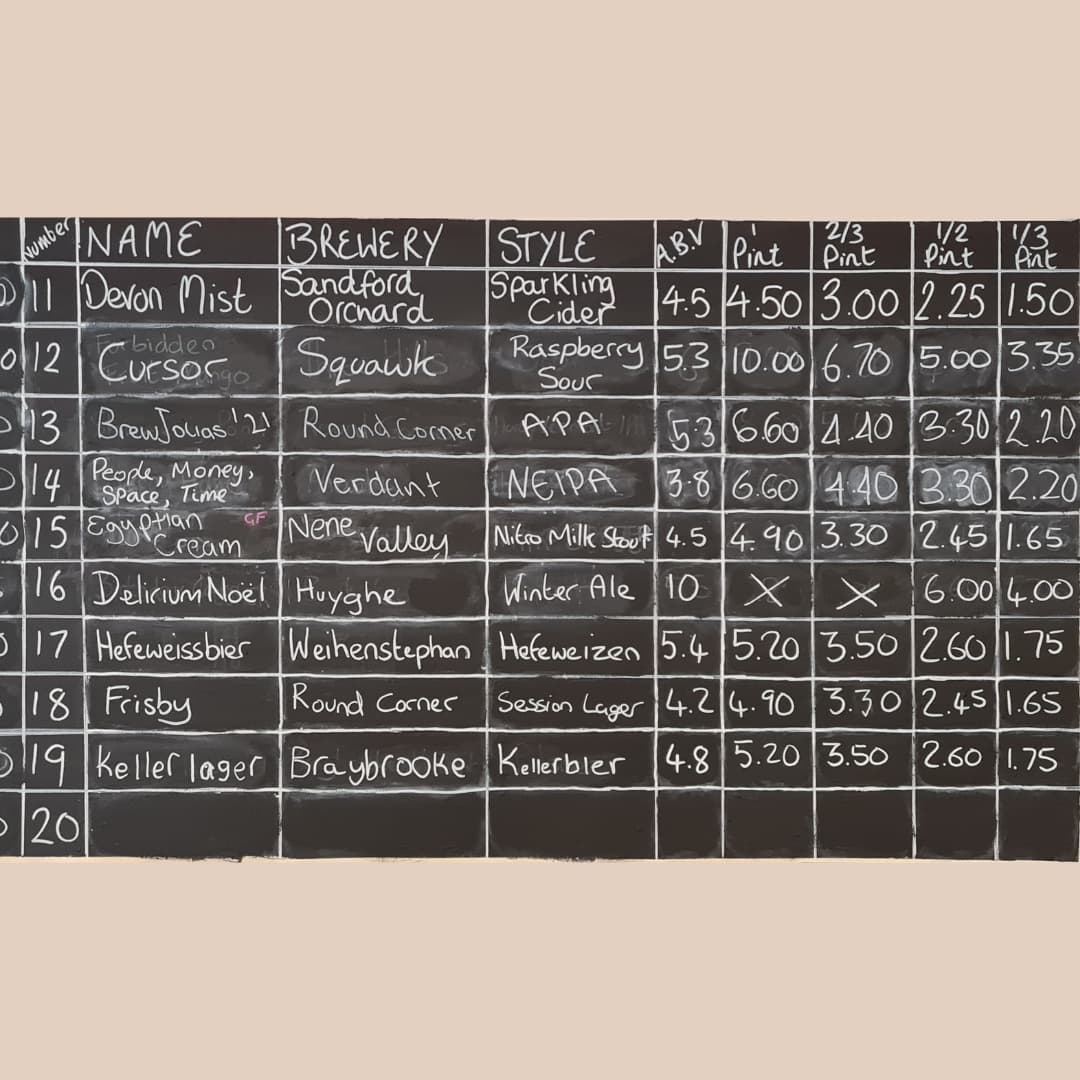 Number NAME BREWERY STYLE A.B.V 1 Pint 2/3 Pint 1/2 Pint 1/3 Pint
11 Devon Mist Sandford Orchard Sparkling Cider 4.5 4.50 3.00 2.25 1.50
12 Cursor Squawk Raspberry Sour 5.3 10.00 6.70 5.00 3.35
13 BrewJolias '21 Round Corner APA 5.3 6.60 4.40 3.30 2.20
14 People, Money, Space, Time Verdant NEIPA 3.8 6.60 4.40 3.30 2.20
15 Egyptian Cream GF Nene Valley Nitro Milk Stout 4.5 4.90 3.30 2.45 1.65
16 Delirium Noël Huyghe Winter Ale 10 X X 6.00 4.00
17 Hefeweissbier Weihenstephan Hefeweizen 5.4 5.20 3.50 2.60 1.75
18 Frisby Round Corner Session Lager 4.2 4.90 3.30 2.45 1.65
19 Keller lager Braybrooke Kellerbier 4.8 5.20 3.50 2.60 1.75
20